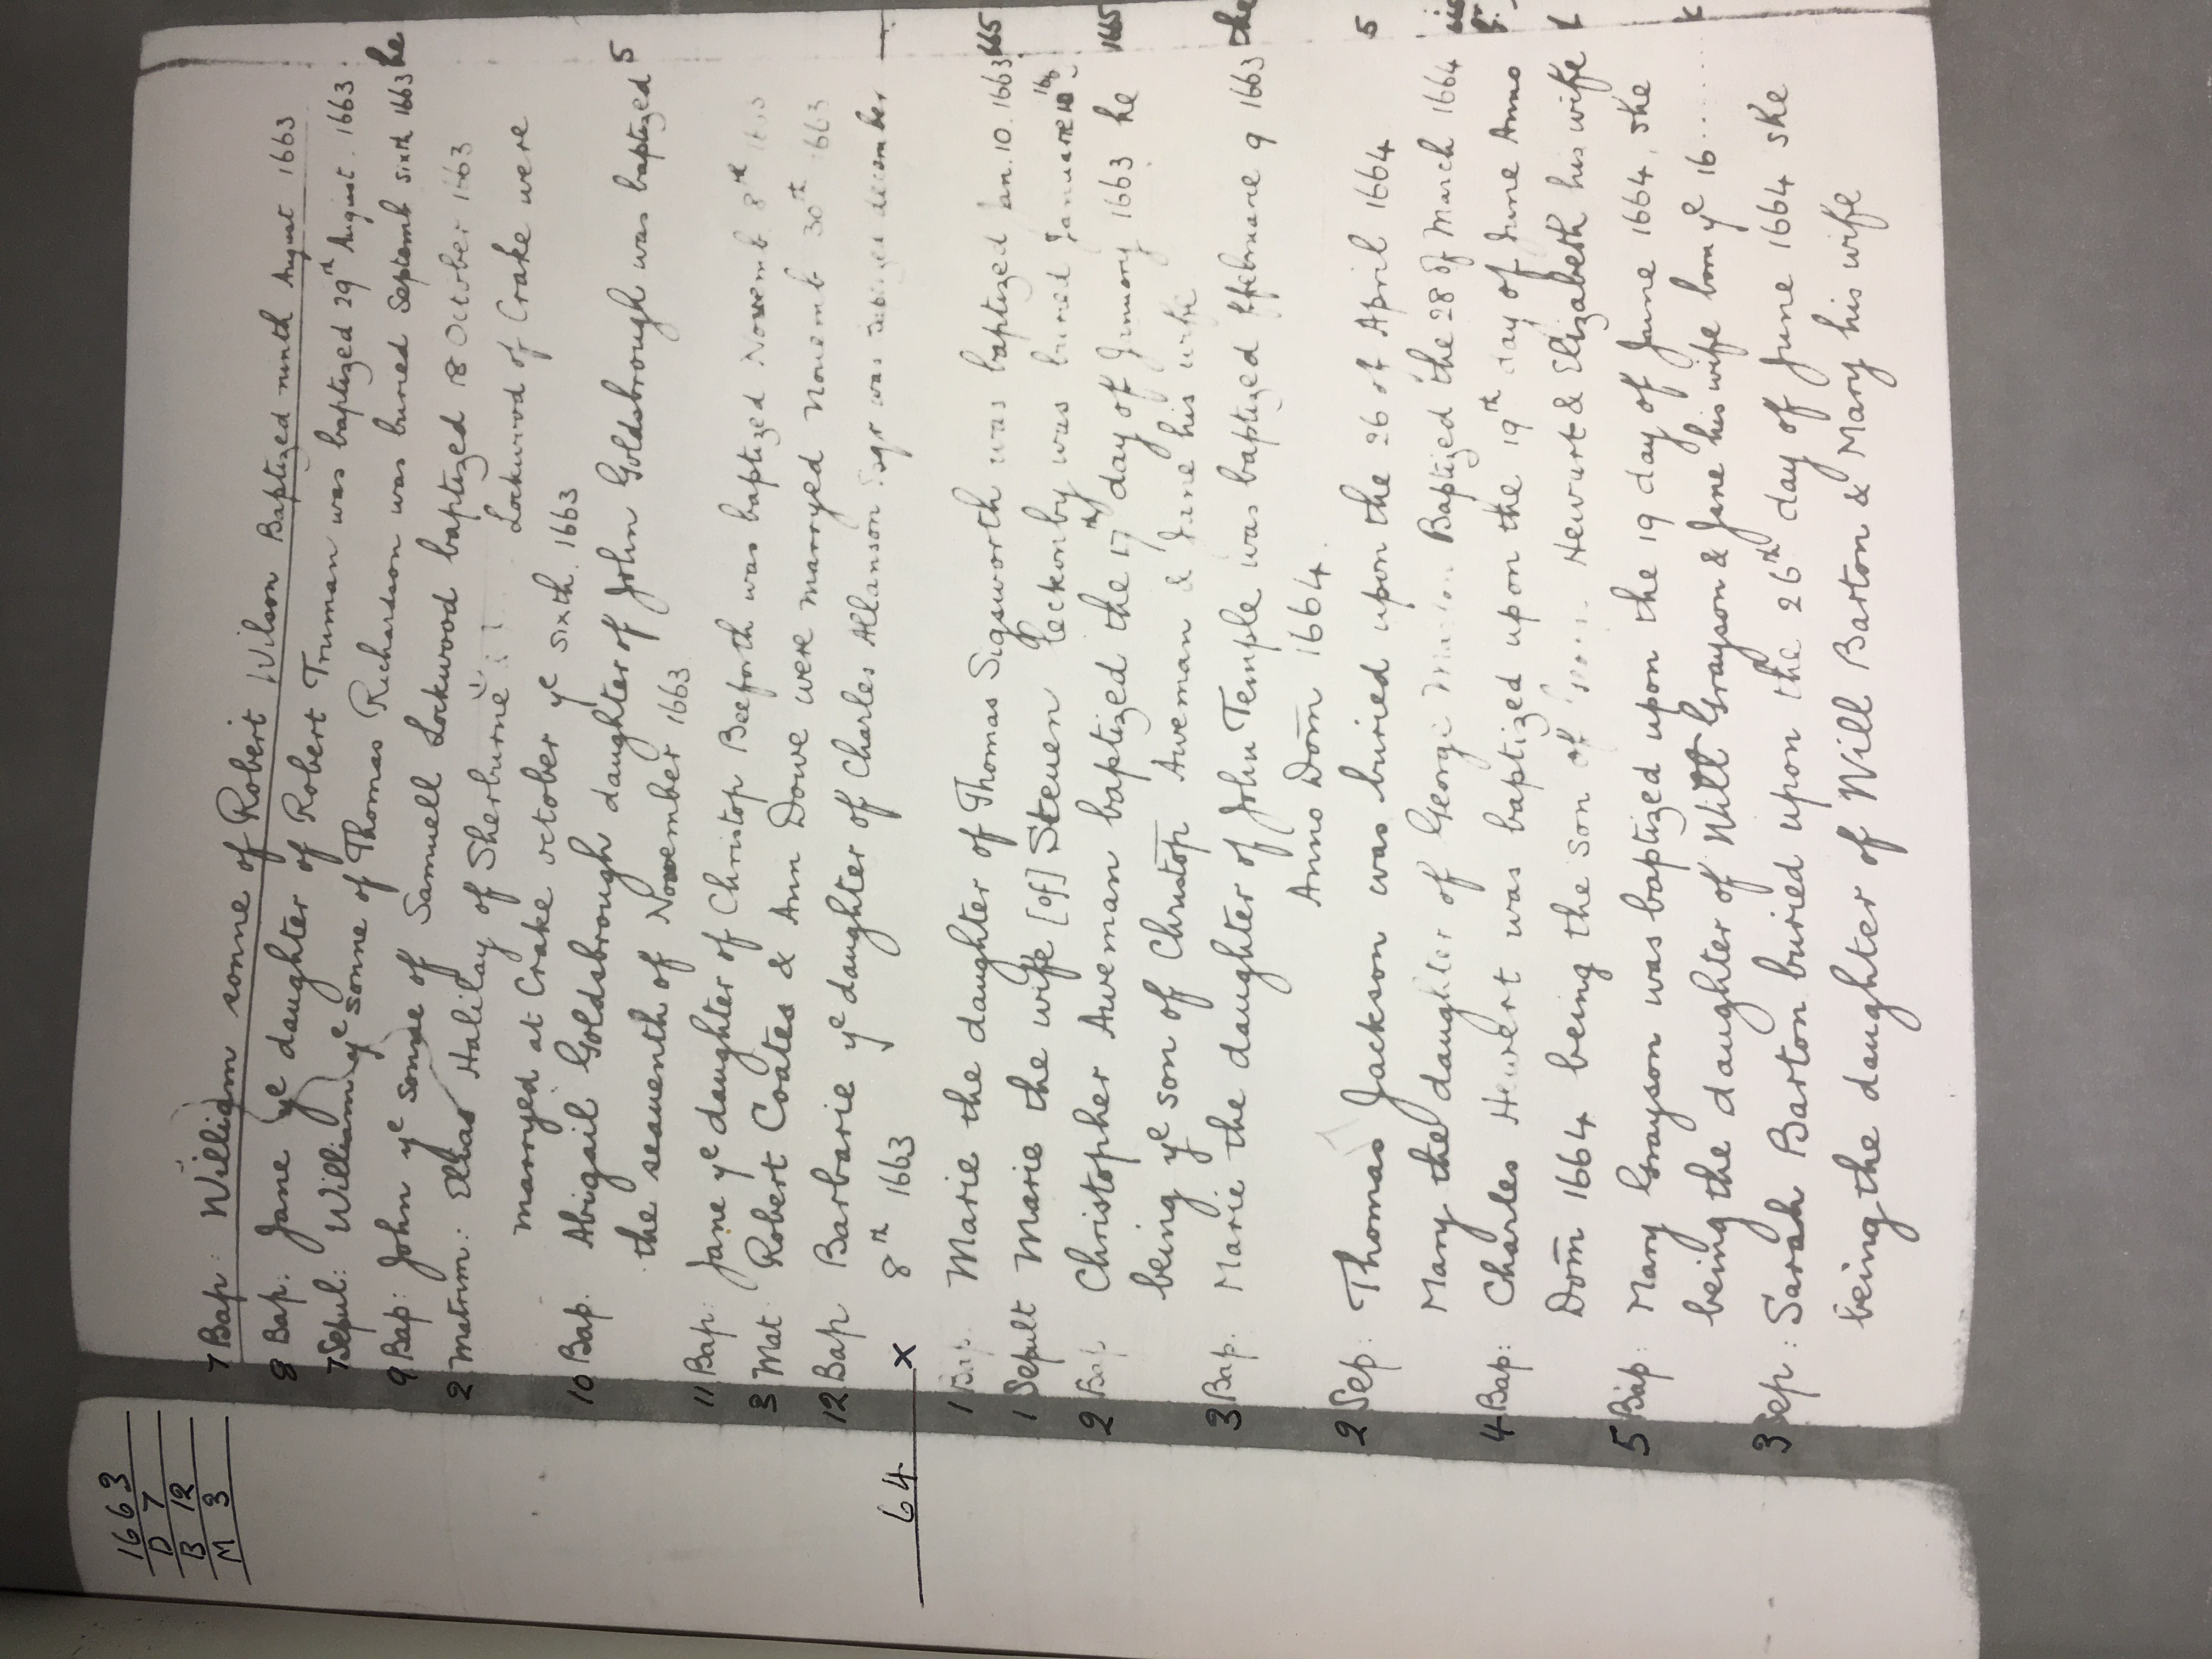 1663
D 7
B 12
M 3
7 Bap: William sonne of Robert Wilson Baptized ninth August 1663
8 Bap: Jane ye daughter of Robert Truman was baptized 29th August. 1663.
7 Sepul: William ye sonne of Thomas Richardson was buried Septemb sixth 1663
9 Bap: John ye sonne of Samuell Lockwood baptized 18 October 1663
2 Matrim: Halilay of Sherburne Lockwood of Crake were
marryed at Crake october ye sixth. 1663
10 Bap. Abigail Goldsbrough daughter of John Goldsbrough was baptized
the seauenth of Nouember 1663
11 Bap: Jane ye daughter of Christop Beeforth was baptized Nouemb. 8th 1663
3 Mat: Robert Coates & Ann Dowe were marryed Nouemb 30th 1663
12 Bap Barbarie ye daughter of Charles Allanson was december
8th 1663
64 x
1 Bap. Marie the daughter of Thomas Sigsworth was baptized Jan. 10. 1663
1 Sepult Marie the wife [of] Steuen Leckonby was buried
2 Bap Christopher Aweman baptized the 17th day of January 1663 he
being ye son of Christop Aweman & Jane his wife
3 Bap. Marie the daughter of John Temple was baptized ffebruare 9 1663
Anno Dom̄ 1664.
2 Sep: Thomas Jackson was buried upon the 26 of April 1664
Mary the daughter of George Baptized the 28 of March 1664
4 Bap: Charles Hewert was baptized upon the 19th day of June Anno
Dom̄ 1664 being the son of Hewart & Elizabeth his wife
5 Bap: Mary Grayson was baptized upon the 19 day of June 1664, she
being the daughter of Will Grayson & Jane his wife born ye 16.....
3 Sep: Sarah Barton buried upon the 26th day of June 1664 she
being the daughter of Will Barton & Mary his wife